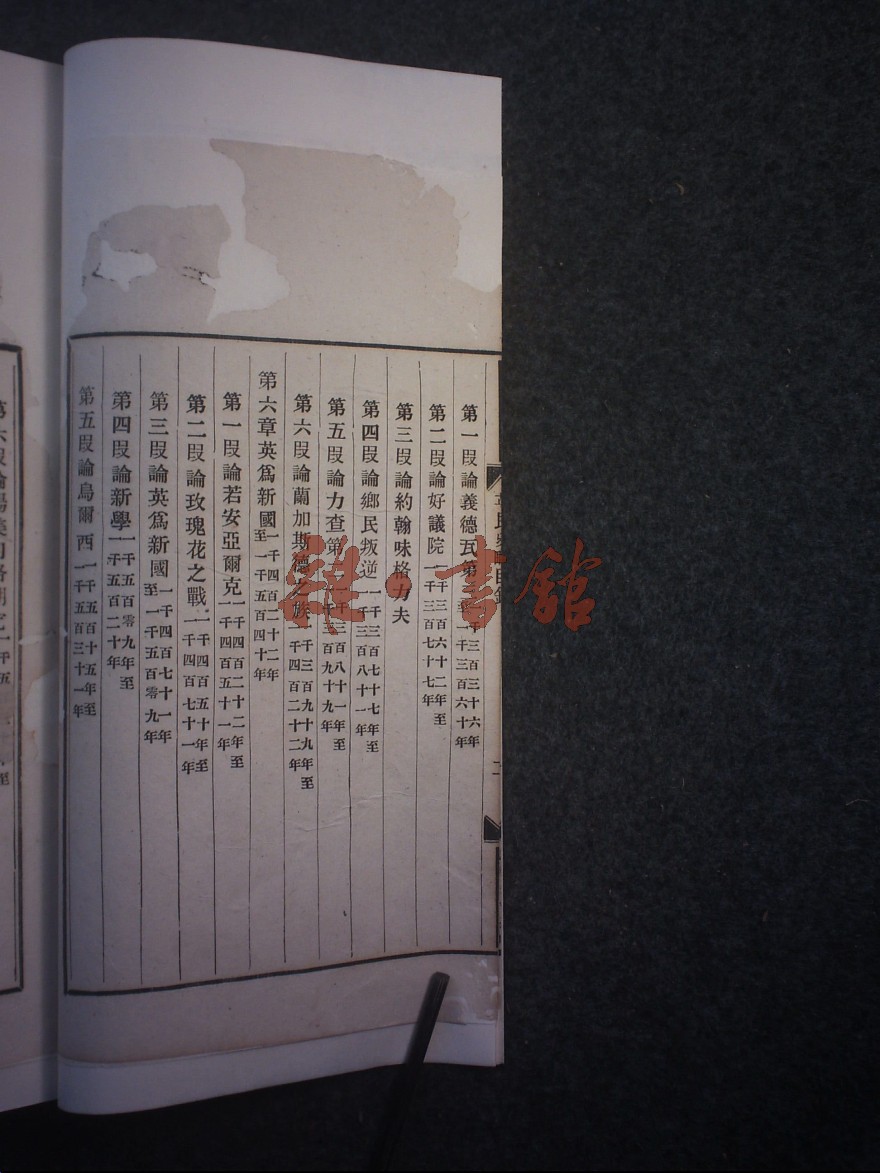 第一段論義德瓦第 一千三百三十六年至一千三百六十年
第二段論好議院 一千三百六十二年至一千三百七十七年
第三段論約翰味格力夫
第四段論鄉民叛逆 一千三百七十七年至一千三百八十一年
第五段論力查第 一千三百八十一年至一千三百九十九年
第六段論蘭加斯德之族 一千三百九十九年至一千四百二十二年
第六章英爲新國 一千四百二十二年至一千五百四十年
第一段論若安亞爾克 一千四百二十二年至一千四百五十一年
第二段論玫瑰花之戰 一千四百五十年至一千四百七十一年
第三段論英爲新國 一千四百七十一年至一千五百零九年
第四段論新學 一千五百零九年至一千五百二十年
第五段論烏爾西 一千五百十五年至一千五百三十一年
雜·書館